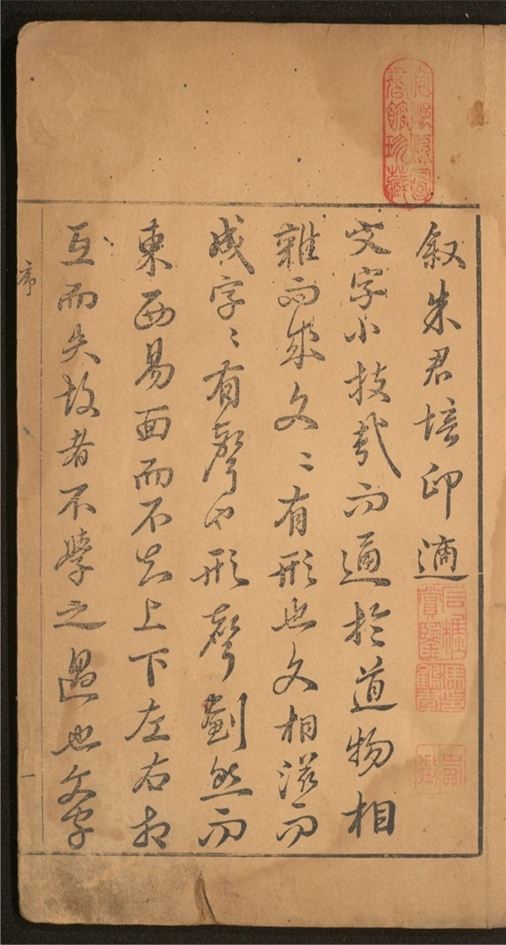 叙朱君培印適
文字小技哉而通於道物相
雜而成文〻有形也文相滋而
成字〻有聲也形聲劃然而
東西易面而不知上下左右相
互而失故者不學之過也文字
序
一